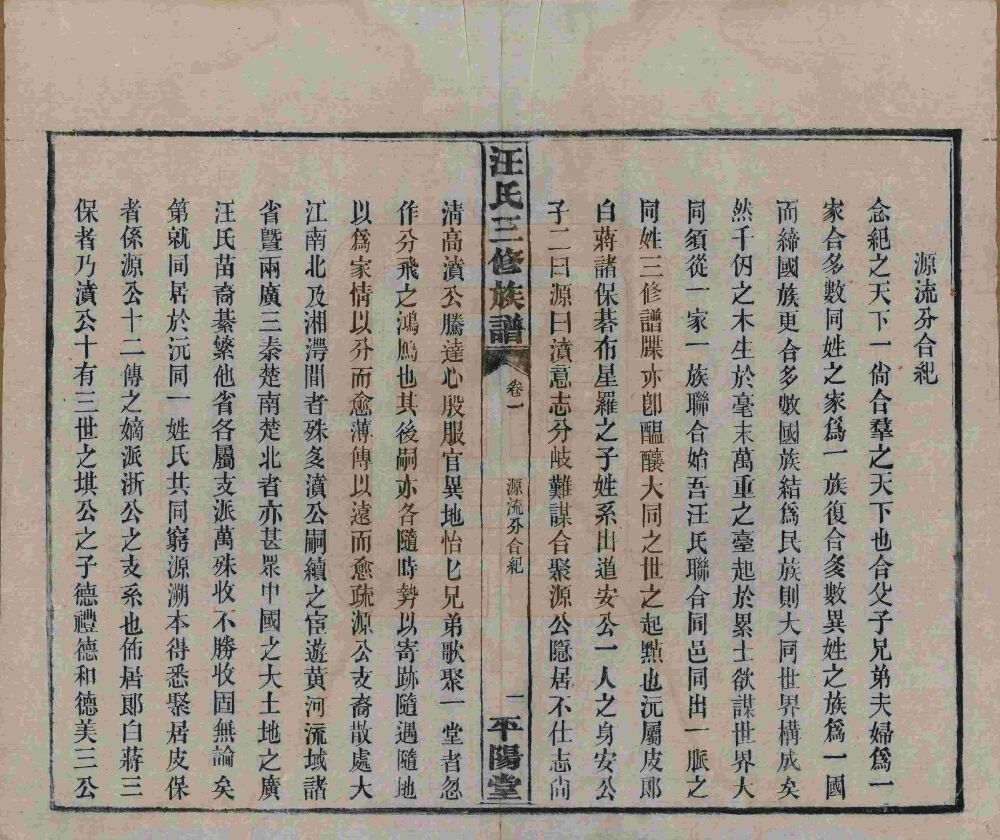 源流分合紀
念紀之天下一尙合羣之天下也合父子兄弟夫婦爲一
家合多數同姓之家爲一族復合多數異姓之族爲一國
而締國族更合多數國族結爲民族則大同世界構成矣
然千仞之木生於毫末萬重之臺起於累土欲謀世界大
同須從一家一族聯合始吾汪氏聯合同邑同出一脈之
同姓三修譜牒亦卽醞釀大同之世之起點也沅屬皮郎
白蔣諸保碁布星羅之子姓系出道安公一人之身安公
子二曰源曰濆意志分岐難謀合聚源公隱居不仕志尚
清高濆公騰達心殷服官異地怡怡兄弟歌聚一堂者忽
作分飛之鴻鴈也其後嗣亦各隨時勢以寄跡隨遇隨地
以爲家情以分而愈薄傳以遠而愈疏源公支裔散處大
江南北及湘澧間者殊多濆公嗣續之宦遊黃河流域諸
省曁兩廣三秦楚南楚北者亦甚衆中國之大土地之廣
汪氏苗裔綦繁他省各屬支派萬殊收不勝收固無論矣
第就同居於沅同一姓氏共同窮源溯本得悉聚居皮保
者係源公十二傳之嫡派浙公之支系也佈居郎白蔣三
保者乃濆公十有三世之堪公之子德禮德和德美三公
汪氏三修族譜
卷一
源流分合紀
一
平陽堂